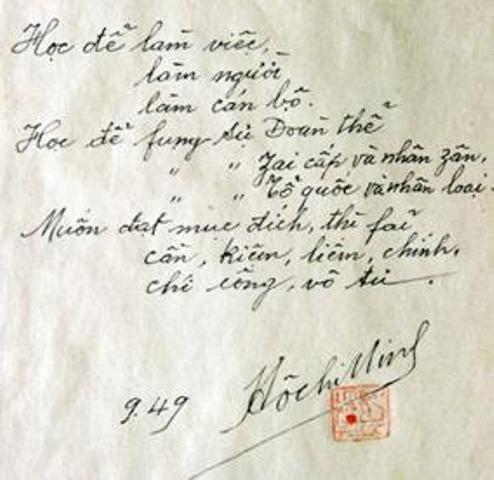 Học để làm việc,
làm người
làm cán bộ.
Học để fụng sự Đoàn thể
" " Zai cấp và nhân zân,
" " Tổ quốc và nhân loại.
Muốn đạt mục đích, thì fải
cần, kiệm, liêm, chính,
chí công, vô tư.
9.49 Hồ Chí Minh